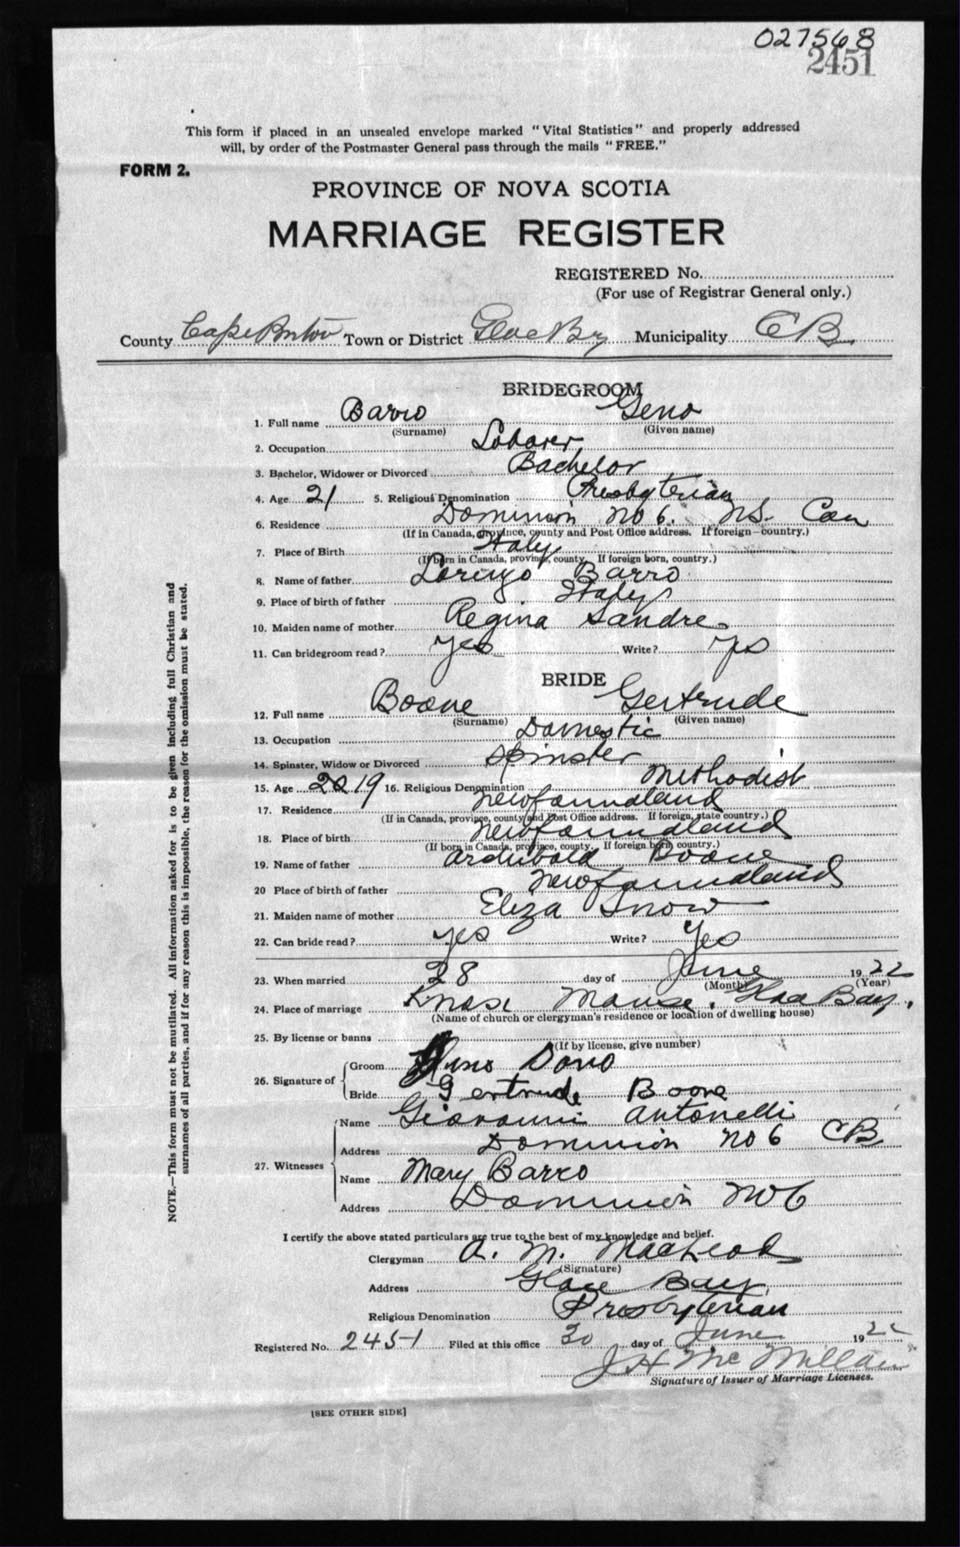 027568
2451
This form if placed in an unsealed envelope marked "Vital Statistics" and properly addressed
will, by order of the Postmaster General pass through the mails "FREE."
FORM 2.
PROVINCE OF NOVA SCOTIA
MARRIAGE REGISTER
REGISTERED No.
(For use of Registrar General only.)
County Cape Breton Town or District Glace Bay Municipality CB
BRIDEGROOM
1. Full name Barro Geno
(Surname) (Given name)
2. Occupation Laborer
3. Bachelor, Widower or Divorced Bachelor
4. Age 21 5. Religious Denomination Presbyterian
6. Residence Dominion No 6. N.S. Can
(If in Canada, province, county and Post Office address. If foreign country.)
7. Place of Birth Italy
(If born in Canada, province, county. If foreign born, country.)
8. Name of father Lorenzo Barro
9. Place of birth of father Italy
10. Maiden name of mother Regina Sandre
11. Can bridegroom read? yes Write? yes
BRIDE
12. Full name Boone Gertrude
(Surname) (Given name)
13. Occupation Domestic
14. Spinster, Widow or Divorced Spinster
15. Age 19 16. Religious Denomination Methodist
17. Residence Newfoundland
(If in Canada, province, county and Post Office address. If foreign, state country.)
18. Place of birth Newfoundland
(If born in Canada, province, county. If foreign born, country.)
19. Name of father Archibald Boone
20 Place of birth of father Newfoundland
21. Maiden name of mother Eliza Snow
22. Can bride read? yes Write? Yes
23. When married 28 day of June 1922
(Month) (Year)
24. Place of marriage Knox Manse, Glace Bay.
(Name of church or clergyman's residence or location of dwelling house)
25. By license or banns
(If by license, give number)
26. Signature of
Groom
Bride Gertrude Boone
27. Witnesses
Name Giovanni Antonelli
Address Dominion No 6 CB
Name Mary Barro
Address Dominion No 6
I certify the above stated particulars are true to the best of my knowledge and belief.
Clergyman A. M. MacLeod
(Signature)
Address Glace Bay
Religious Denomination Presbyterian
Registered No. 2451 Filed at this office 30 day of June 1922
J H McMillan
Signature of Issuer of Marriage Licenses.
[SEE OTHER SIDE]
NOTE.—This form must not be mutilated. All information asked for is to be given including full Christian and
surnames of all parties, and if for any reason this is impossible, the reason for the omission must be stated.